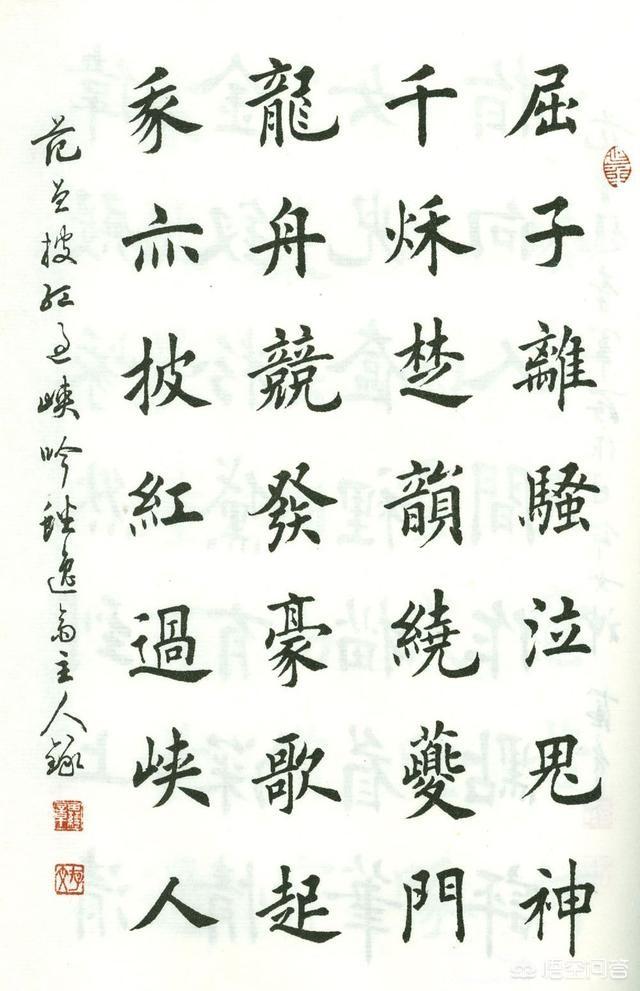 屈子離騷泣鬼神
千秌楚韻繞夔門
龍舟競發豪歌起
亦披紅過峽人
披紅過峽吟 逸 主人錄
悟空问答